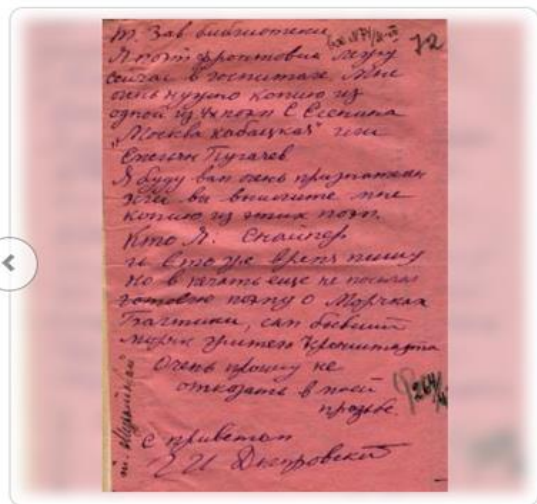 Т. Зав библиотеки
72
Я поэт фронтовик лежу
сейчас в госпитале. Мне
очень нужно копию из
одной из поэм С Есенина
"Москва кабацкая" или
Пугачев
Я буду вам очень признателен
если вы вышлите мне
копию из этих поэм.
Кто Я. Снайпер
и в то же время пишу
но в печать еще не посылал
готовлю поэму о Моряках
Балтики, сам бывший
моряк Кронштадта
Очень прошу не
отказать в моей
прозьбе.
с приветом
И Днепровский